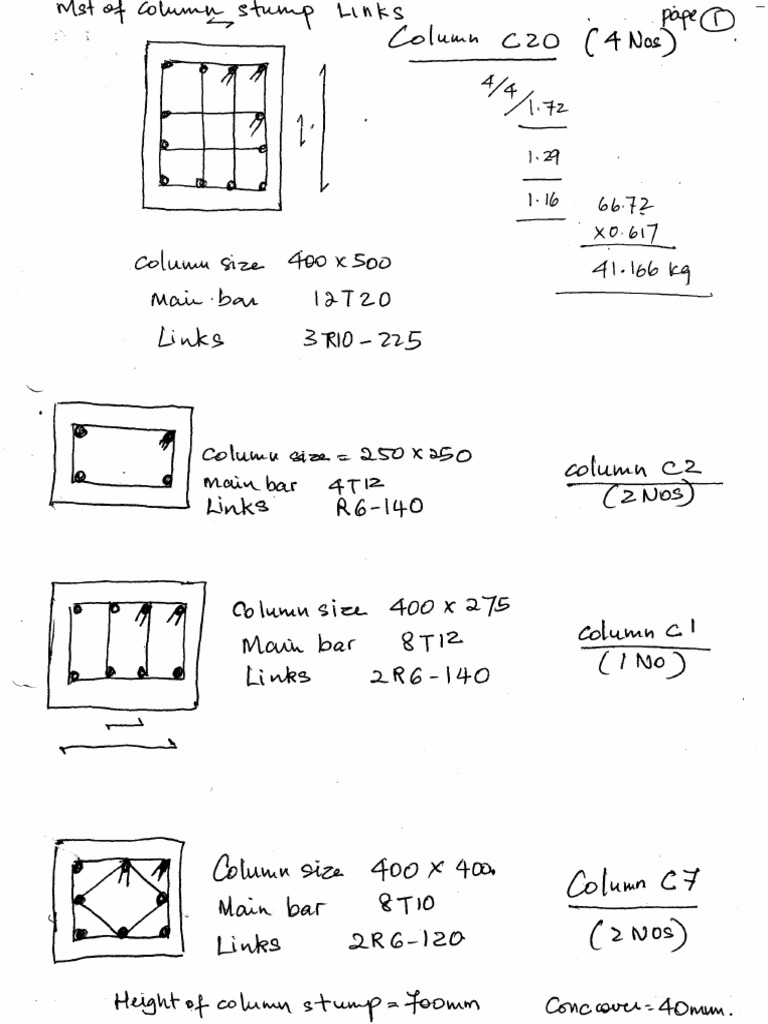 Mst of column stump Links
page 1
Column C20 (4 Nos)
4/4/1.72
1.29
1.16
66.72
x0.617
41.166 kg
column size 400 x 500
Main bar 12T20
Links 3R10-225
column size = 250 x 250
main bar 4T12
Links R6-140
column C2
(2 Nos)
column size 400 x 275
Main bar 8T12
Links 2R6-140
column C1
(1 No)
Column size 400 x 400
Main bar 8T10
Links 2R6-120
Column C7
(2 Nos)
Height of column stump = 700mm
Conc cover = 40mm.